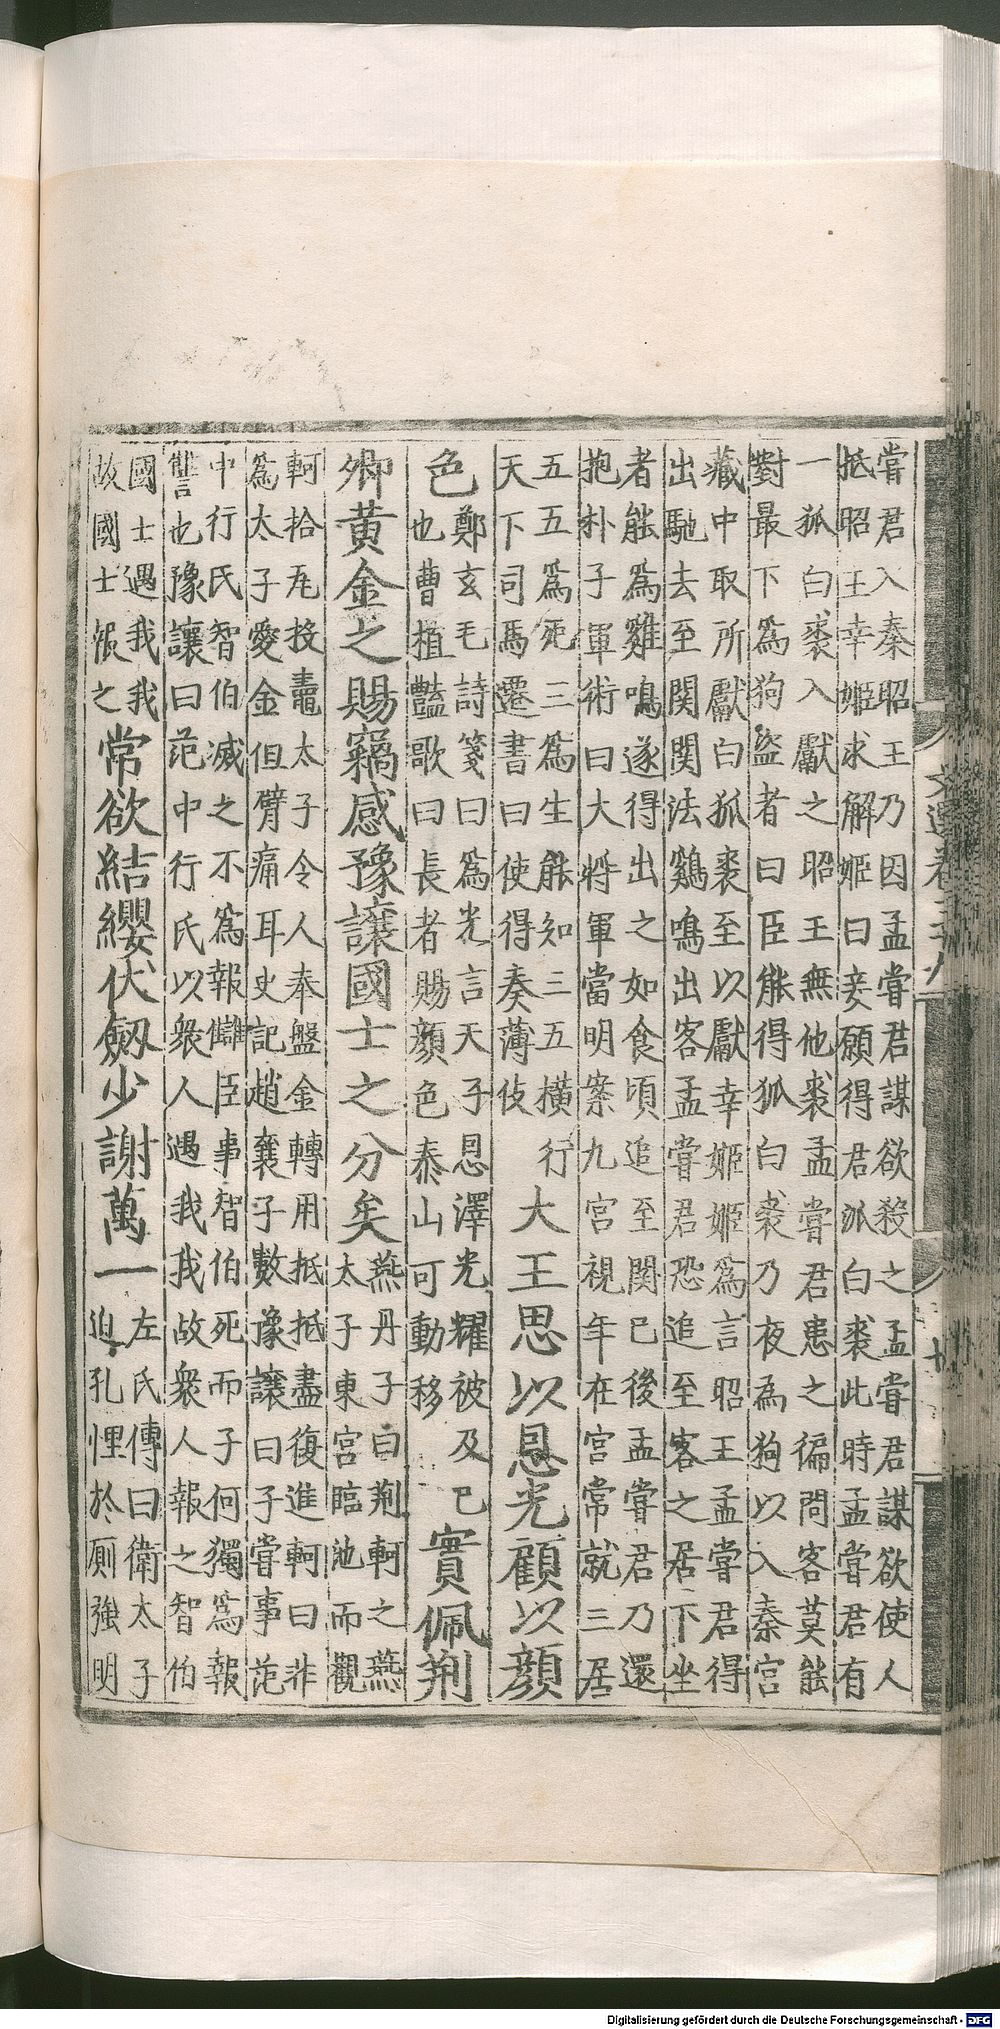 嘗君入秦昭王乃因孟嘗君謀欲殺之孟嘗君謀欲使人
抵昭王幸姬求解姬曰妾願得君狐白裘此時孟嘗君有
一狐白裘入獻之昭王無他裘孟嘗君患之徧問客莫能
對最下爲狗盜者曰臣能得狐白裘乃夜為狗以入秦宮
藏中取所獻白狐裘至以獻幸姬姬爲言昭王孟嘗君得
出馳去至関関法鷄鳴出客孟嘗君恐追至客之居下坐
者能爲雞鳴遂得出之如食頃追至関已後孟嘗君乃還
抱朴子軍術曰大將軍當明案九宮視年在宮常就三居
五五爲死三爲生能知三五橫行
天下司馬遷書曰使得奏薄伎
大王思以恩光顧以顔
色
鄭玄毛詩箋曰爲光言天子恩澤光耀被及己
也曹植豔歌曰長者賜顔色泰山可動移
實佩荆
卿黃金之賜竊感豫讓國士之分矣
燕丹子曰荆軻之燕
太子東宮臨池而觀
軻拾瓦投鼃太子令人奉盤金轉用抵抵盡復進軻曰非
爲太子愛金但臂痛耳史記趙襄子數豫讓曰子嘗事范
中行氏智伯滅之不爲報讎臣事智伯死而子何獨爲報
讐也豫讓曰范中行氏以衆人遇我我故衆人報之智伯
國士遇我我
故國士報之
常欲結纓伏劔少謝萬一
左氏傳曰衛太子
迫孔悝於厠強明
Digitalisierung gefördert durch die Deutsche Forschungsgemeinschaft - DFG